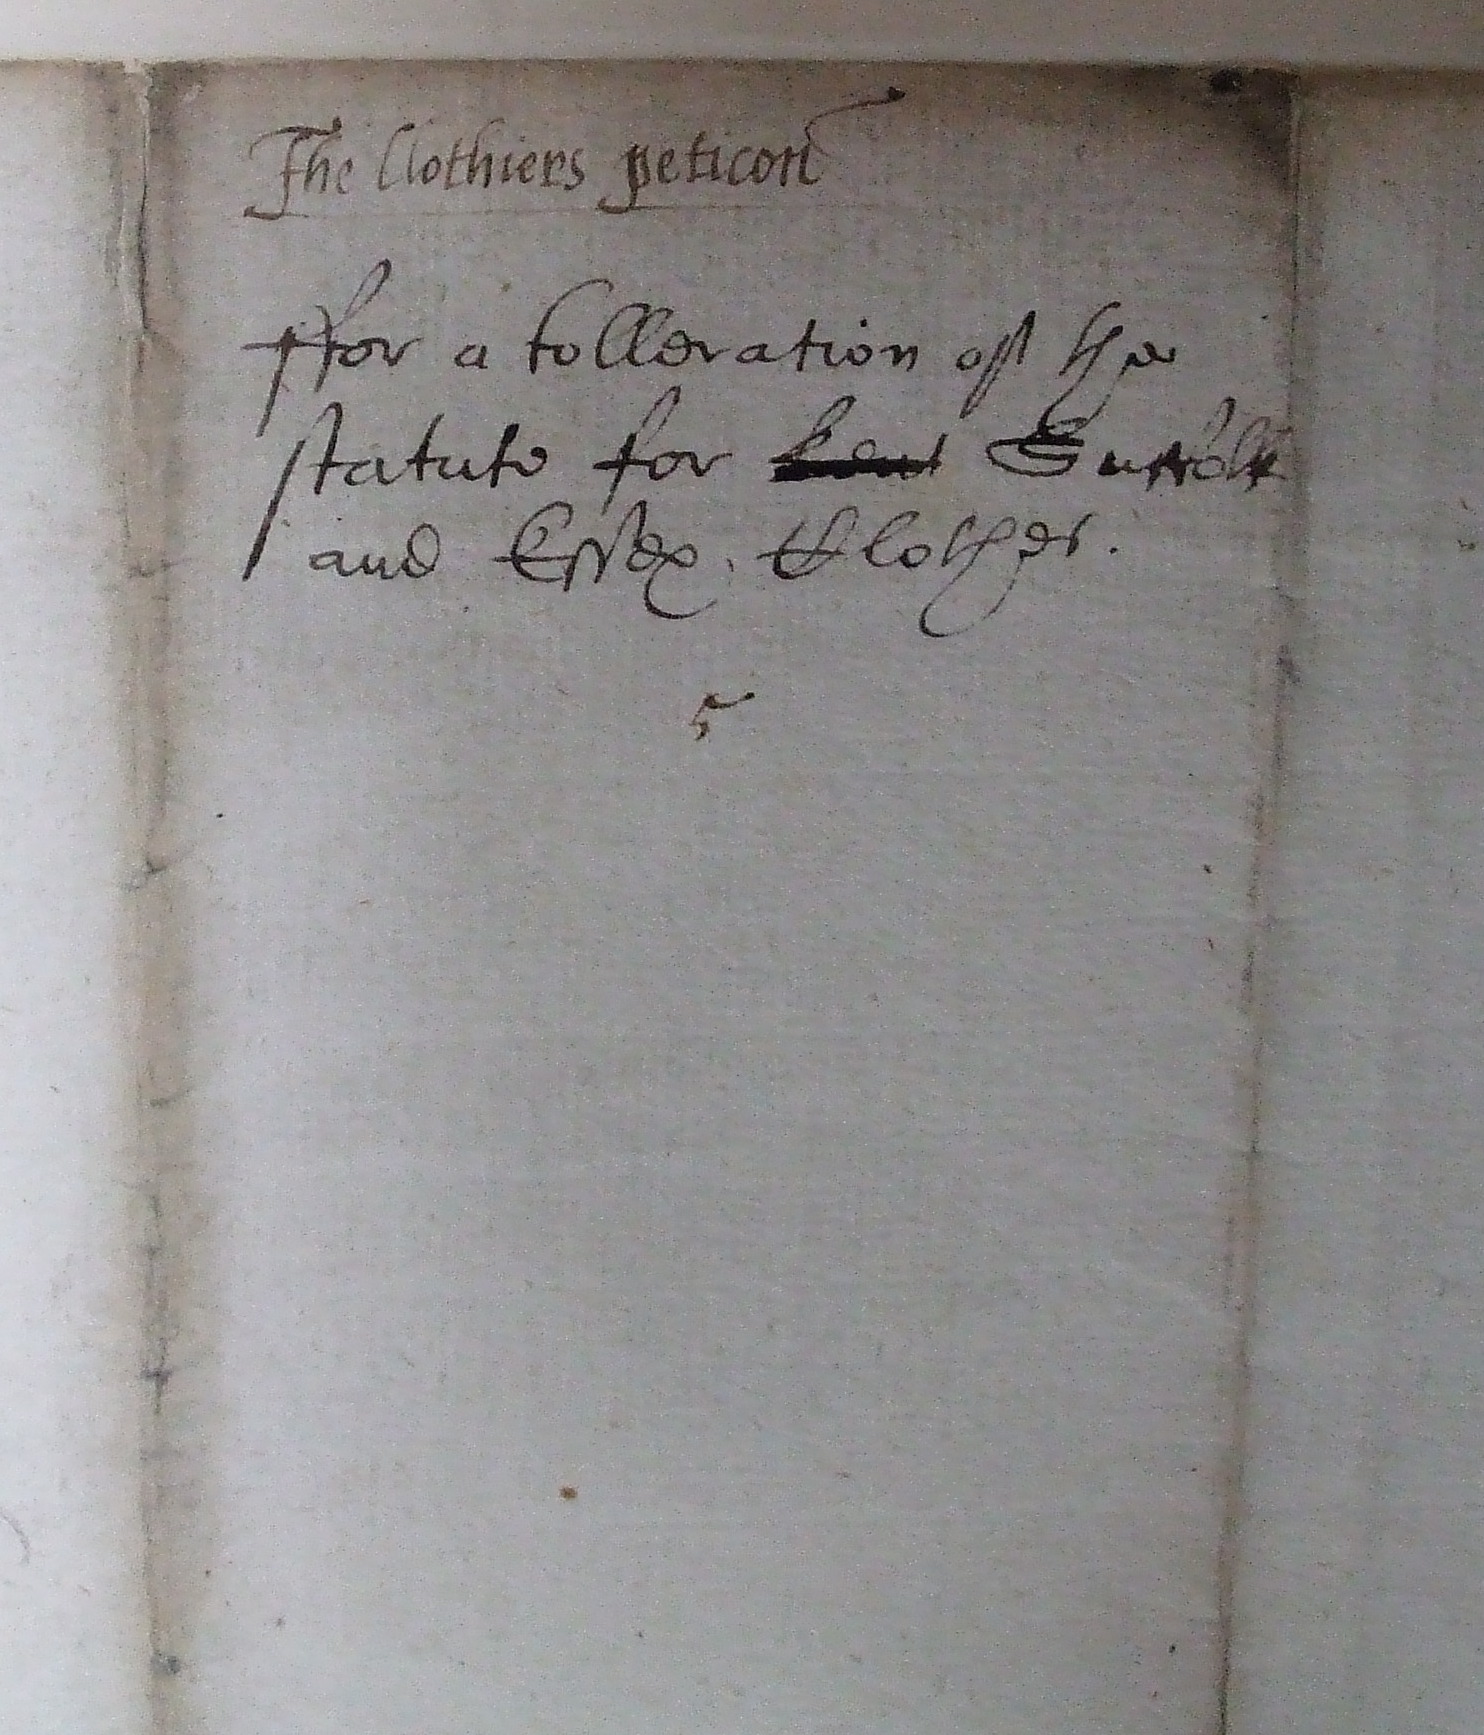 The Clothiers peticon
ffor a tolleration off the
statute for kent Suffolk
and Essex. Clothes.
5